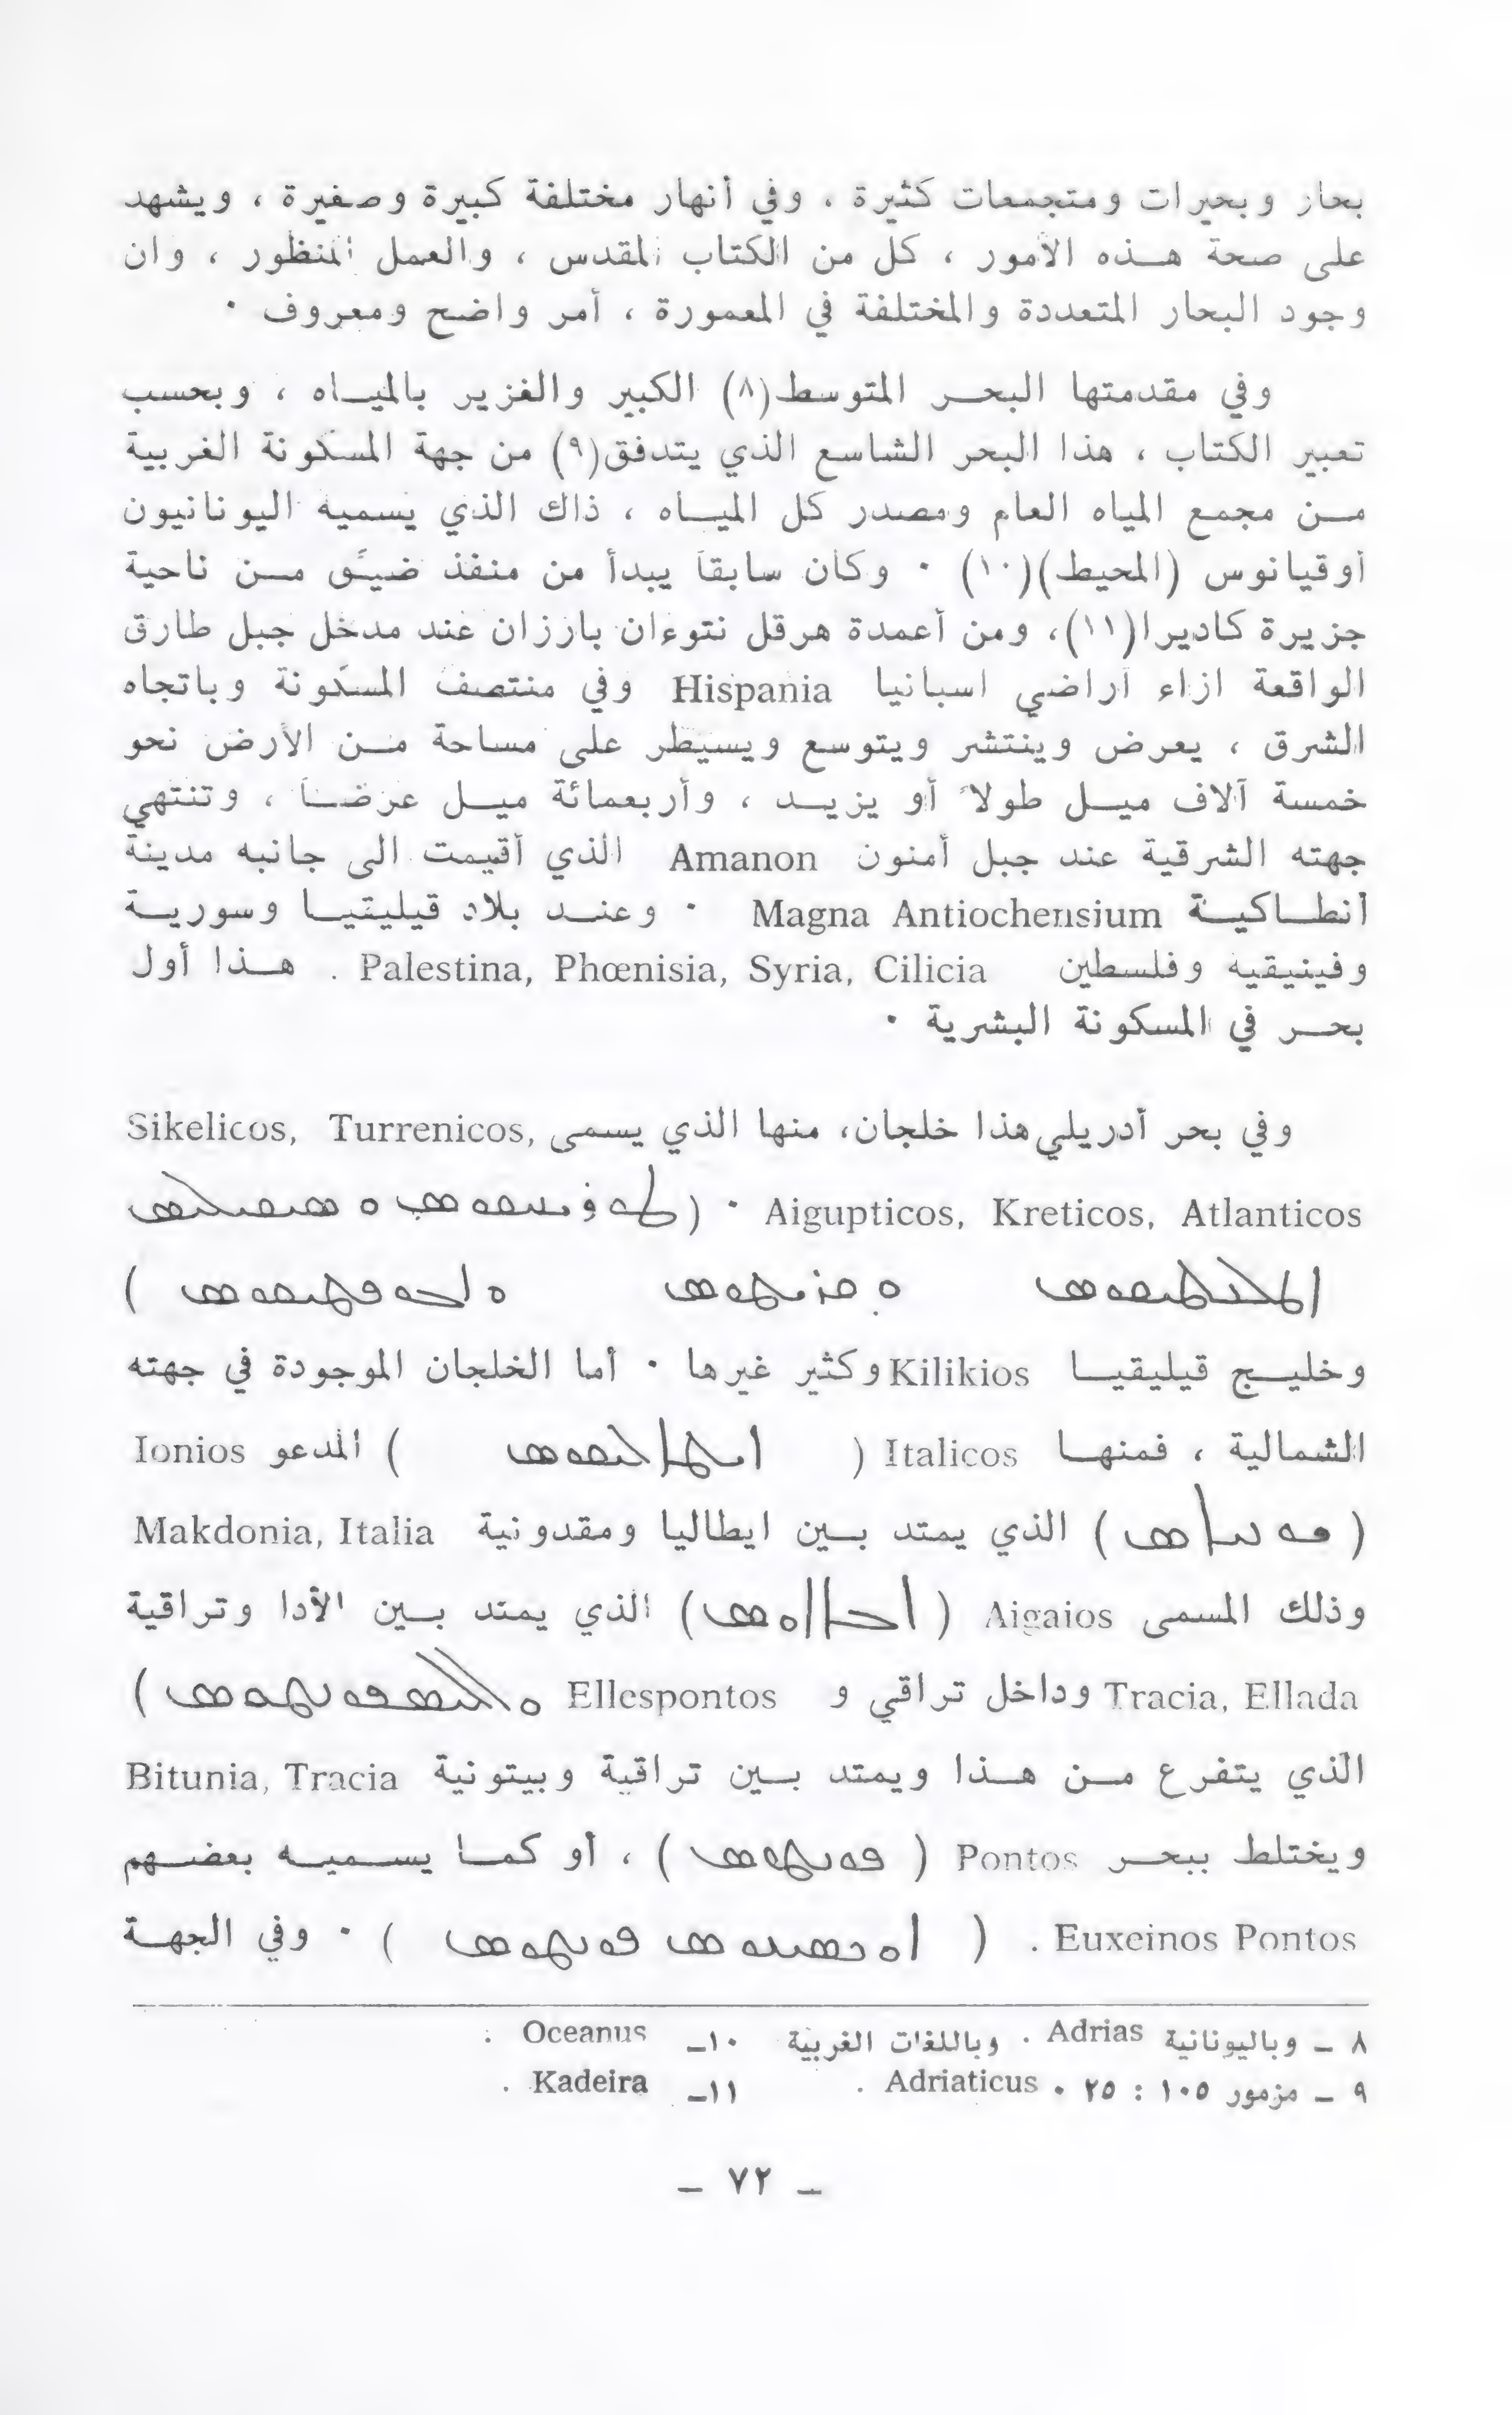 بحار وبحيرات ومتجمعات كثيرة ، وفي أنهار مختلفة كبيرة وصغيرة ، ويشهد
على صحة هـذه الأمور ، كل من الكتاب المقدس ، والعمل المنظور ، وان
وجود البحار المتعددة والمختلفة في المعمورة ، أمر واضح ومعروف ٠
وفي مقدمتها البحـر المتوسط(٨) الكبير والغزير بالميـاه ، وبحسب
تعبير الكتاب ، هذا البحر الشاسع الذي يتدفق(٩) من جهة المسكونة الغربية
مـن مجمع المياه العام ومصدر كل الميـاه ، ذاك الذي يسميه اليونانيون
أوقيانوس (المحيط)(١٠) ٠ وكان سابقاً يبدأ من منفذ ضيّق مـن ناحية
جزيرة كاديرا(١١)، ومن أعمدة هرقل نتوءان بارزان عند مدخل جبل طارق
الواقعة ازاء أراضي اسبانيا Hispania وفي منتصف المسكونة وباتجاه
الشرق ، يعرض وينتشر ويتوسع ويسيطر على مساحة مـن الأرض نحو
خمسة آلاف ميـل طولاً أو يزيـد ، وأربعمائة ميـل عرضـاً ، وتنتهي
جهته الشرقية عند جبل أمنون Amanon الذي أقيمت الى جانبه مدينة
أنطـاكيـة Magna Antiochensium ٠ وعنـد بلاد قيليقيـا وسوريـة
وفينيقيه وفلسطين Palestina, Phœnisia, Syria, Cilicia . هـذا أول
بحـر في المسكونة البشرية ٠
وفي بحر أدريلي هذا خلجان، منها الذي يسمى Sikelicos, Turrenicos,
Aigupticos, Kreticos, Atlanticos ٠ (
)
وخليـج قيليقيـا Kilikios وكثير غيرها ٠ أما الخلجان الموجودة في جهته
الشمالية ، فمنهـا Italicos ( ) المدعو Ionios
( ) الذي يمتد بـين ايطاليا ومقدونية Makdonia, Italia
وذلك المسمى Aigaios ( ) الذي يمتد بـين الأدا وتراقية
Tracia, Ellada وداخل تراقي و Ellespontos )
الذي يتفرع مـن هـذا ويمتد بـين تراقية وبيتونية Bitunia, Tracia
ويختلط ببحـر Pontos ( ) ، أو كمـا يسـميـه بعضـهم
Euxeinos Pontos . ( ) ٠ وفي الجهـة
٨ ـ وباليونانية Adrias . وباللغات الغربية ١٠ـ Oceanus .
٩ ـ مزمور ١٠٥ : ٢٥ ٠ Adriaticus . ١١ـ Kadeira .
ـ ٧٢ ـ